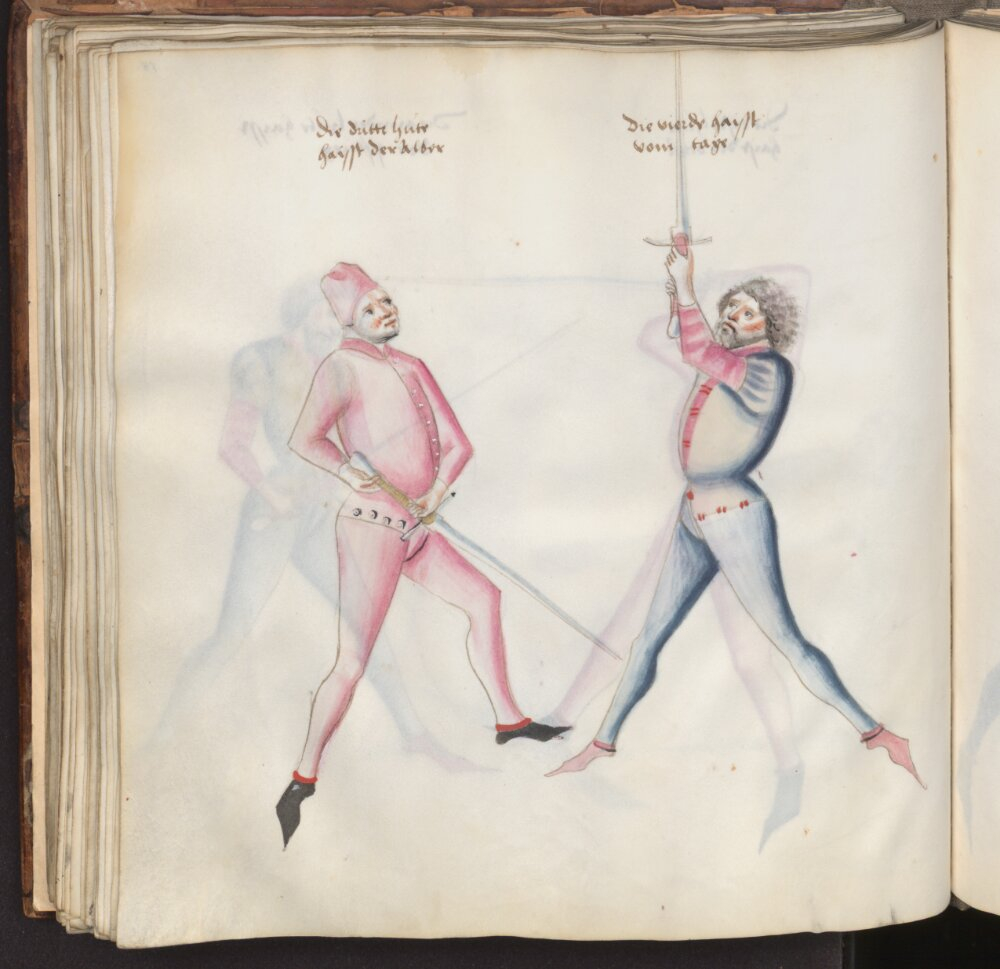 Die dritte hůte
haÿsst der Alber
Die vierde haÿsst
vom tage